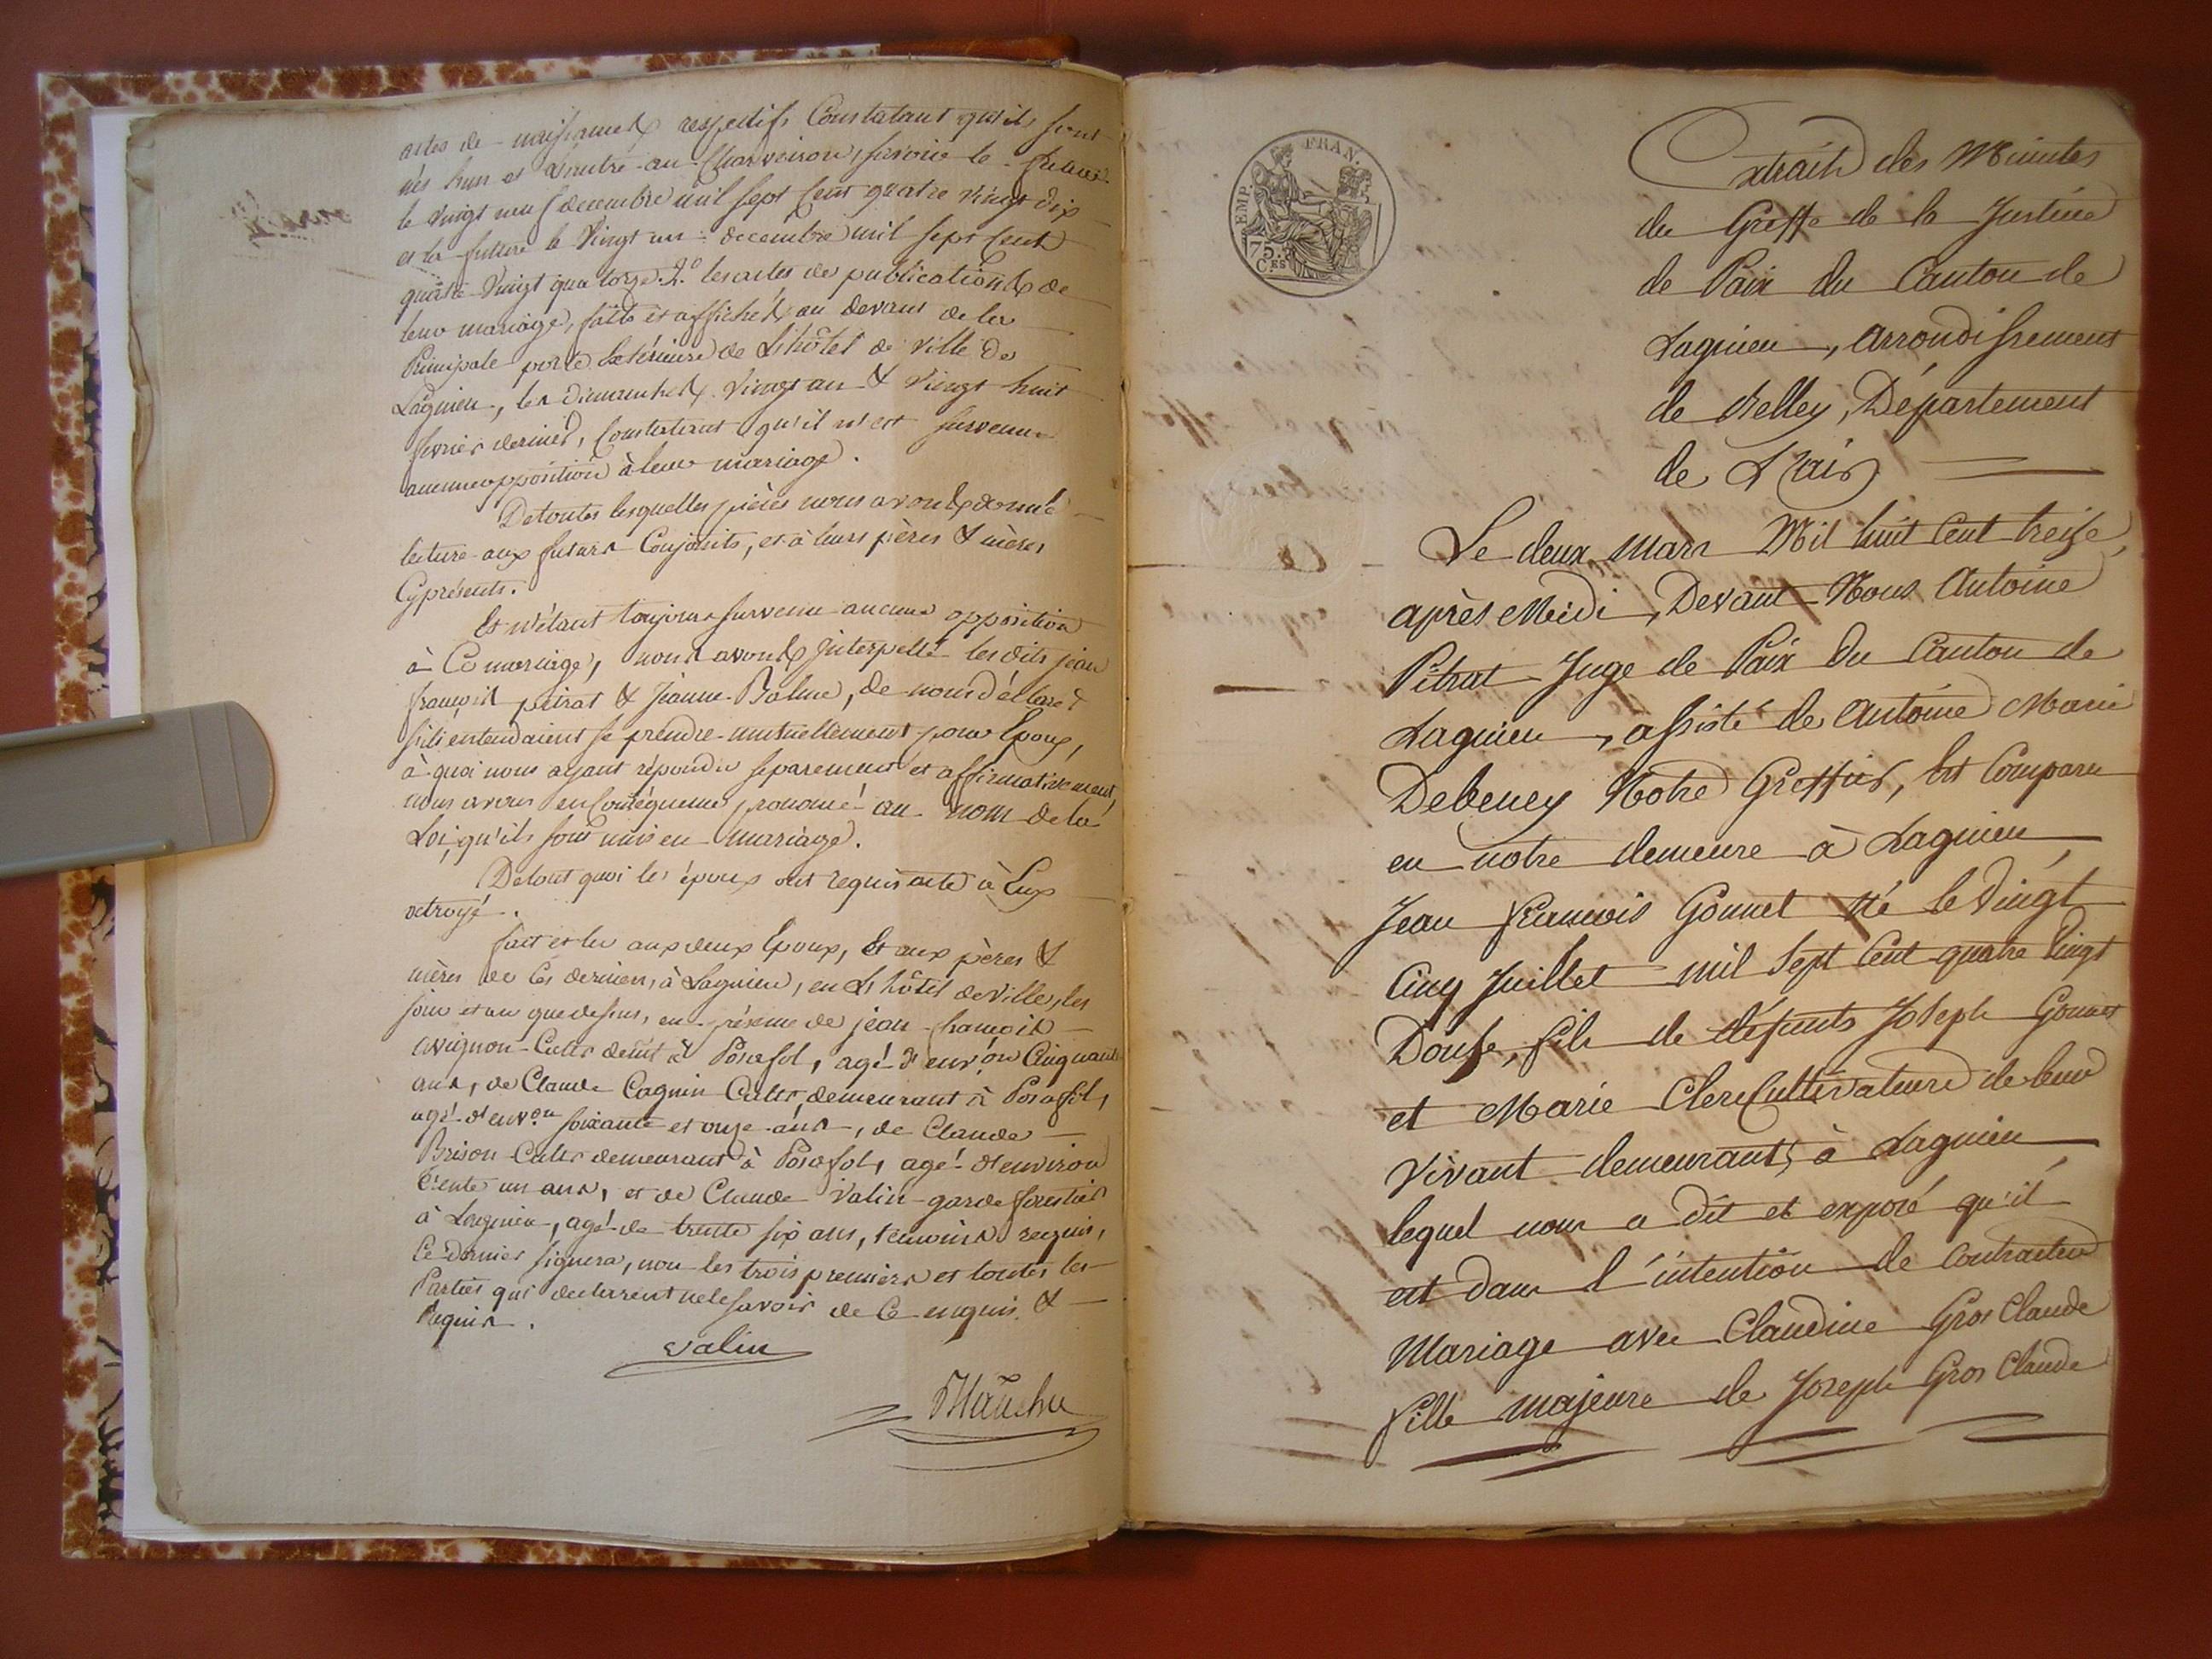 actes de naissances respectifs Constatant qu'ils sont
nés l'un et l'autre au Charveiron, savoir le futur
le vingt neuf decembre mil sept cent quatre vingt dix
et la future le vingt un decembre mil sept cent
quatre vingt quatorze. 2.º les actes de publications de
leur mariage, faits et affichés au devant de la
Principale porte Extérieure de L'hôtel de ville de
Lagnieu, les dimanches vingt un & vingt huit
fevrier dernier, Constatant qu'il n'est survenu
aucune opposition à leur mariage.
De toutes lesquelles pièces nous avons donné
lecture aux futurs Conjoints, et à leurs pères & mères
Cy présents.
Et n'étant toujours survenu aucune opposition
à Ce mariage, nous avons Interpellé les dits jean
françois pitrat & Jeanne Balme, de nous déclarer
s'ils entendaient se prendre mutuellement pour Epoux,
à quoi nous ayant répondu séparement et affirmativement,
nous avons en Conséquence prononcé au nom de la
Loi, qu'ils sont unis en mariage.
De tout quoi les époux ont requis acte à Eux
octroyé.
fait et lu aux deux Epoux, Et aux pères &
mères de Ces derniers, à Lagnieu, en L'hôtel de Ville, les
jour et an que dessus, en présence de jean françois
avignon Cultr demt à Posafol, agé d'env.on Cinquante
ans, de Claude Cagnin Cultr, demeurant à Posafol,
agé d'env.on soixante et onze ans, de Claude
Brison Cultr demeurant à Posafol, agé d'environ
trente un ans, et de Claude Valin garde forestier
à Lagnieu, agé de trente six ans, temoins requis,
Ce dernier signera, non les trois premiers et toutes les
Parties qui declarent ne le savoir de Ce enquis &
Requis.
Valin
FRAN.
EMP.
75.
Ces
Extrait des Minutes
du Greffe de la Justice
de Paix du Canton de
Lagnieu, arrondissement
de Belley, Département
de L'ain
Le deux mars Mil huit Cent treize,
après Midi, Devant Nous Antoine
Pitrat Juge de Paix du Canton de
Lagnieu, assisté de Antoine Marie
Debeney Notre Greffier, Est Comparu
en notre demeure à Lagnieu
Jean françois Gonnet Né le Vingt
Cinq Juillet mil Sept Cent quatre Vingt
Douze, fils de défunts Joseph Gonnet
et Marie Clerc Cultivateurs de leur
Vivant demeurants à Lagnieu,
lequel nous a dit et exposé qu'il
est dans l'intention de Contracter
Mariage avec Claudine Gros Claude
fille majeure de Joseph Gros Claude